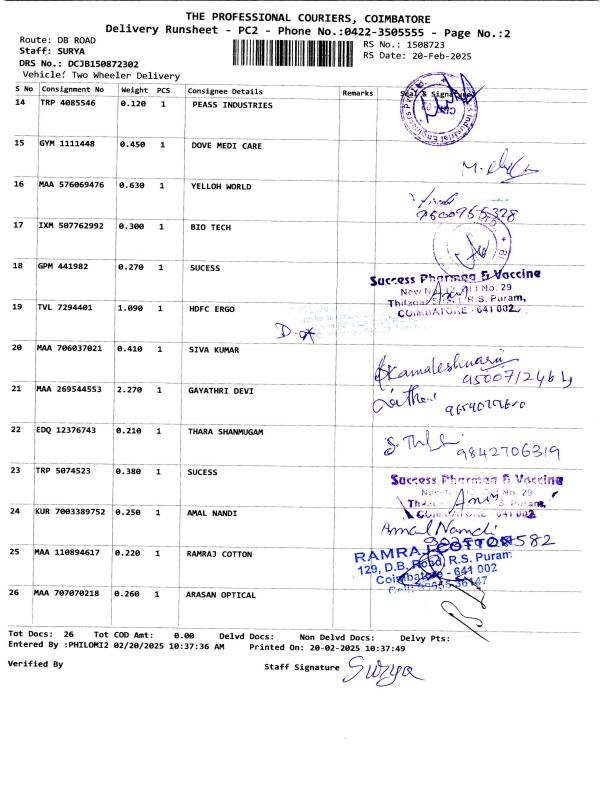 THE PROFESSIONAL COURIERS, COIMBATORE
Delivery Runsheet - PC2 - Phone No.:0422-3505555 - Page No.:2
Route: DB ROAD
RS No.: 1508723
Staff: SURYA
RS Date: 20-Feb-2025
DRS No.: DCJB150872302
Vehicle: Two Wheeler Delivery
S No Consignment No Weight PCS Consignee Details Remarks Seal & Signature
14 TRP 4085546 0.120 1 PEASS INDUSTRIES
15 GYM 1111448 0.450 1 DOVE MEDI CARE
16 MAA 576069476 0.630 1 YELLOH WORLD
9600955328
17 IXM 507762992 0.300 1 BIO TECH
18 GPM 441982 0.270 1 SUCESS
Success Pharmea & Vaccine
No. 29
R.S. Puram,
COIMBATORE - 641 002
19 TVL 7294401 1.090 1 HDFC ERGO
20 MAA 706037021 0.410 1 SIVA KUMAR
Kamaleshwari
21 MAA 269544553 2.270 1 GAYATHRI DEVI
22 EDQ 12376743 0.210 1 THARA SHANMUGAM
9842706319
23 TRP 5074523 0.380 1 SUCESS
Success Pharmea & Vaccine
No. 29
24 KUR 7003389752 0.250 1 AMAL NANDI
Amal Nandi
25 MAA 110894617 0.220 1 RAMRAJ COTTON
RAMRAJ COTTON
129, D.B. Road, R.S. Puram
Coimbatore - 641 002
26 MAA 707070218 0.260 1 ARASAN OPTICAL
Tot Docs: 26 Tot COD Amt: 0.00 Delvd Docs: Non Delvd Docs: Delvy Pts:
Entered By :PHILOMI2 02/20/2025 10:37:36 AM Printed On: 20-02-2025 10:37:49
Verified By
Staff Signature Surya